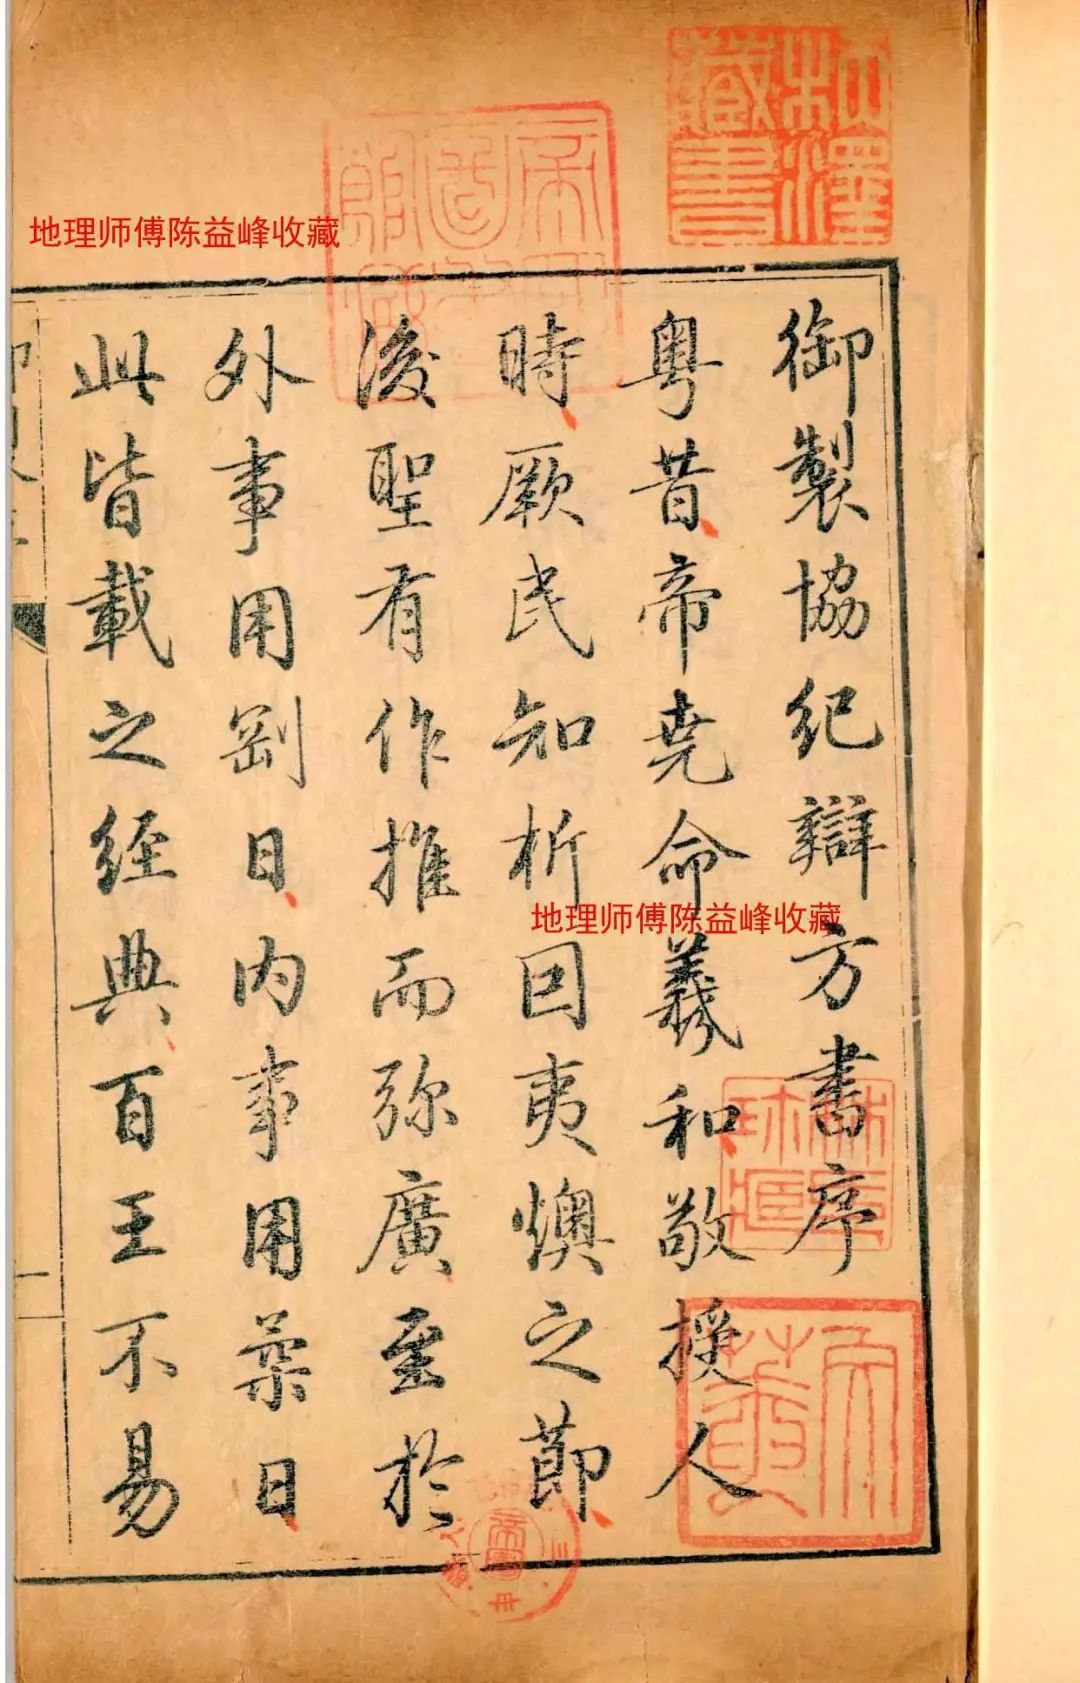 地理师傅陈益峰收藏
帝國圖書館藏
御製協紀辯方書序
粵昔帝堯命羲和敬授人
時厥民知析因夷燠之節
後聖有作推而弥廣至於
外事用剛日内事用柔日
此皆載之經典百王不易
地理师傅陈益峰收藏